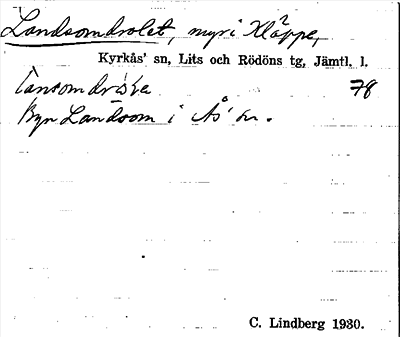 Landsomdrolet, myr i Kläppe,
Kyrkås' sn, Lits och Rödöns tg, Jämtl. l.
78
Byn Landsom i Ås sn.
C. Lindberg 1930.